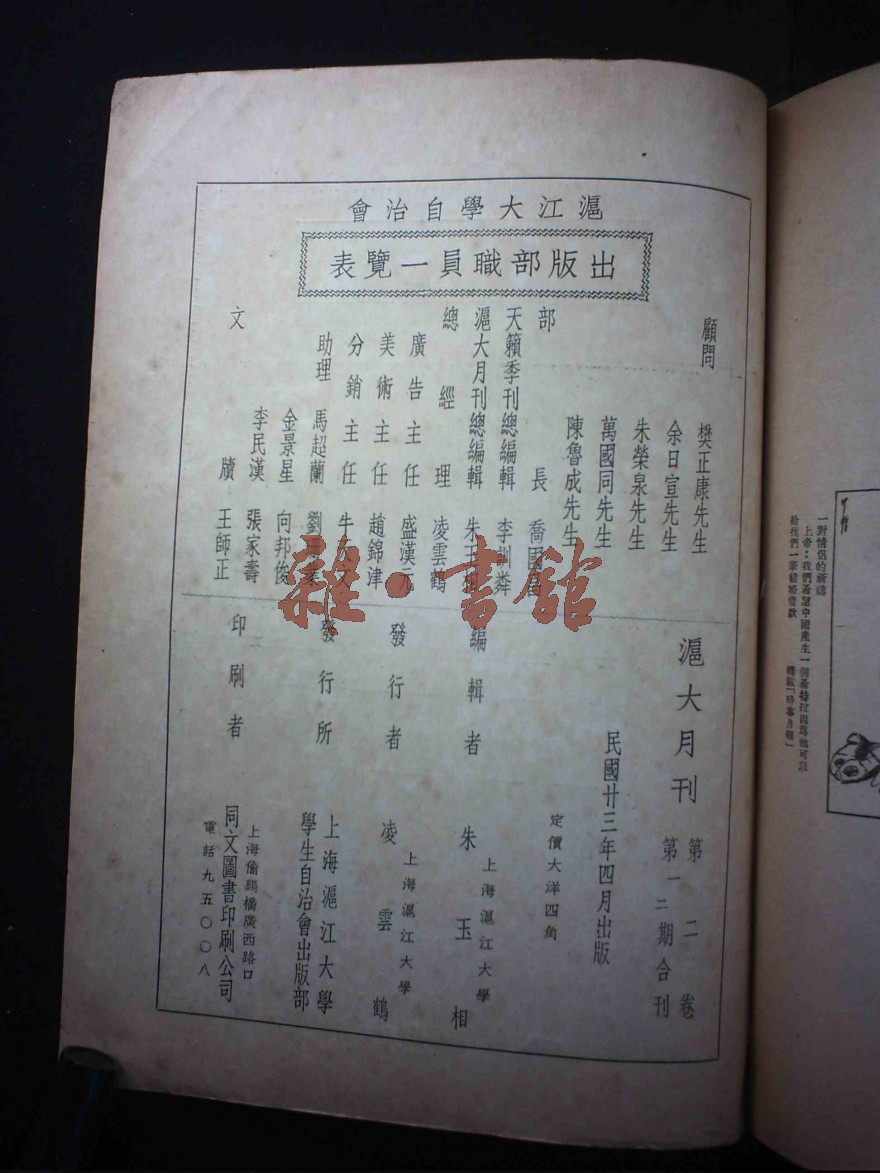 滬江大學自治會
出版部職員一覽表
顧問
樊正康先生
余日宣先生
朱榮泉先生
萬國同先生
陳魯成先生
部長 喬國
天籟季刊總編輯 李訓粦
滬大月刊總編輯 朱玉相
總經理 凌雲鶴
廣告主任 盛漢元
美術主任 趙錦津
分銷主任 牛
助理 馬超蘭 劉
金景星 向邦俊
李民漢 張家壽
文牘 王師正
滬大月刊
第二卷
第一二期合刊
民國廿三年四月出版
定價大洋四角
編輯者
上海滬江大學
朱玉相
發行者
上海滬江大學
凌雲鶴
發行所
上海滬江大學
學生自治會出版部
印刷者
上海偷鷄橋廣西路口
同文圖書印刷公司
電話九五〇〇八
雜·書館
一對情侶的祈禱
上帝：我們希望中國產生一個希特拉因為他可以
給我們一筆結婚借款
轉載「時事月報」